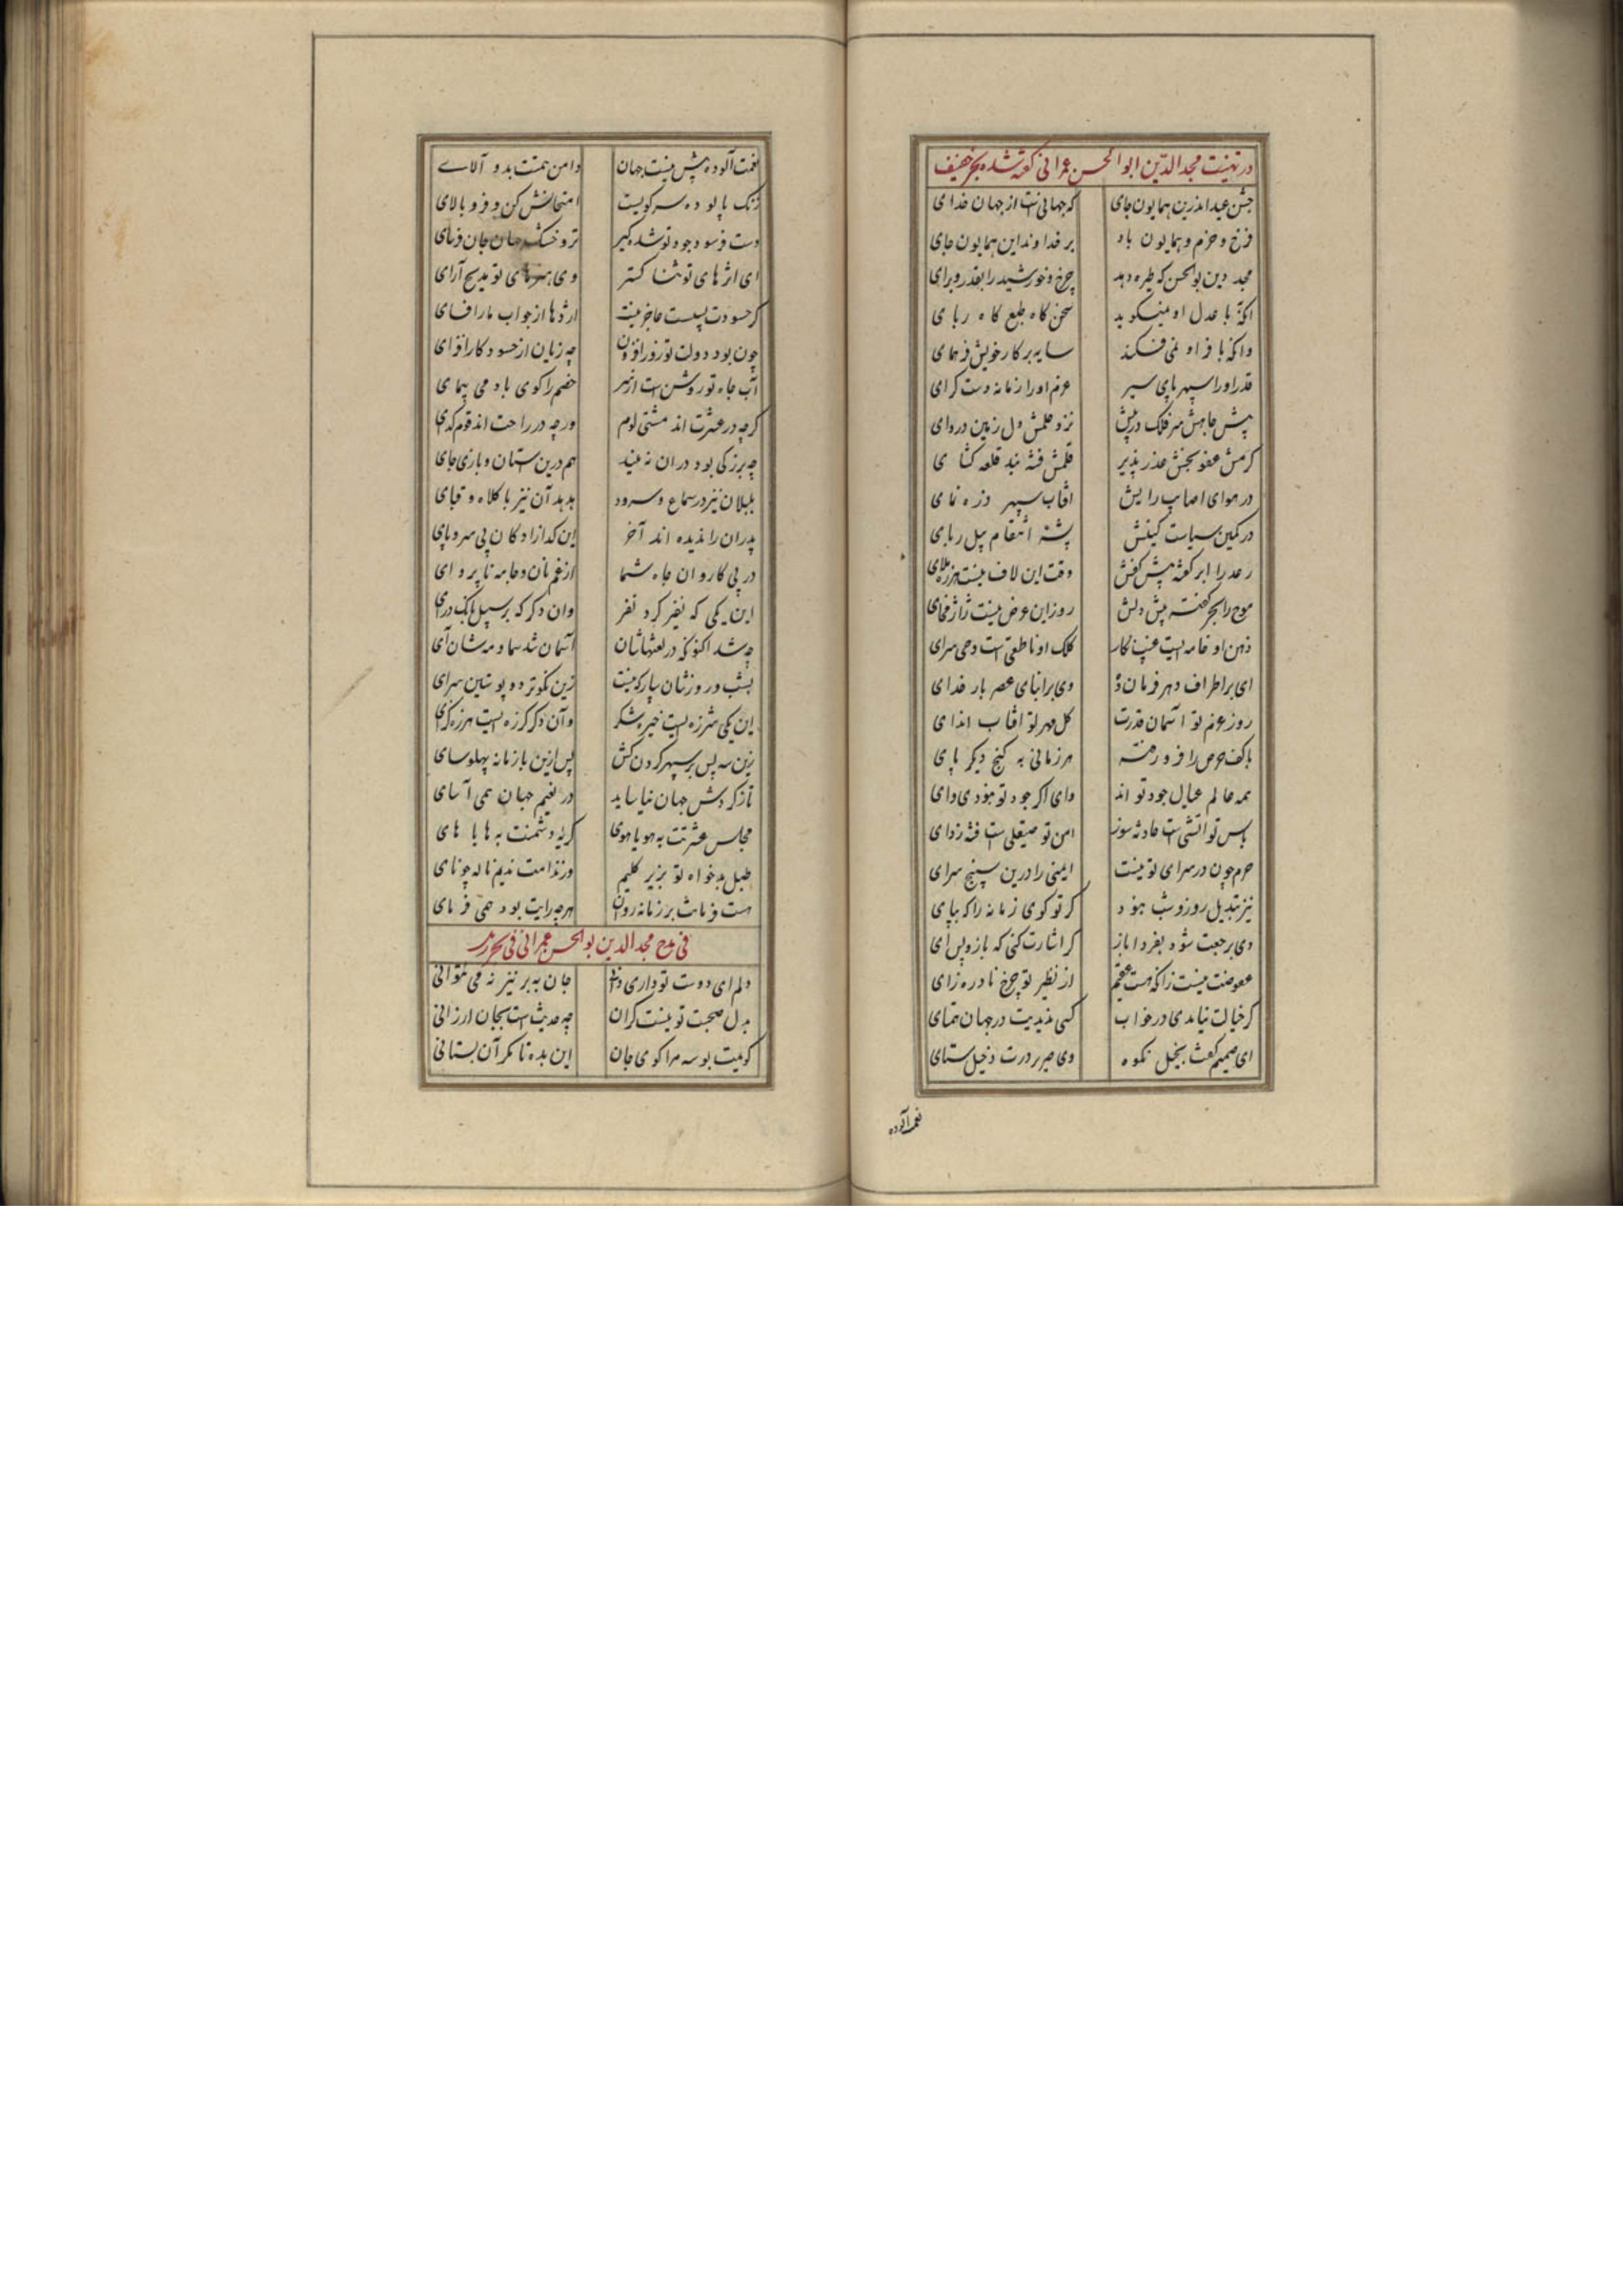 در تهنیت مجد الدین ابوالحسن عمرانی گفته شده بحر خفیف
جشن عید اندرین همایون جای که جهانیست از جهان خدای
فرخ و خرم و همایون باد بر خداوند این همایون جای
مجد دین بوالحسن که طیره دهد چرخ و خورشید را بقدر و برای
آنکه با عدل او نمیگوید سخن کاه طبع کاه ربای
وانکه با فر او نمی فکند سایه بر کار خویش فر همای
قدر او را سپهر پای سپر عزم او را زمانه دست گرای
پیش جاهش سر فلک در پیش نزد حلمش دل زمین دروای
کرمش عفو بخش عذر پذیر قلمش فتنه بند قلعه گشای
در هوای اصابت رایش آفتاب سپهر ذره نمای
در کمین سیاست کینش پشه انتقام پیل ربای
رعد را ابر گفته پیش کفش وقت این لاف نیست هرزه ملای
موج را بحر گفته پیش دلش روز این عرض نیست ژاژ مخای
ذهن او خامه ایست غیب نگار کلک او ناطقی است وحی سرای
ای بر اطراف دهر فرمان ده وی بر ابنای عصر بار خدای
روز عزم تو آسمان قدرت کل مهر تو آفتاب اندای
با کفت حرص را فرو رفته هر زمانی به گنج دیگر پای
همه عالم عیال جود تو اند وای اگر جود تو نبودی وای
باس تو آتشی است حادثه سوز امن تو صیقلی ست فتنه زدای
حرم چون در سرای تو نیست ایمنی را درین سپنج سرای
نیز تبدیل روز و شب نبود گر تو گوی زمانه را که بپای
دی برجعت شود بفردا باز گر اشارت کنی که باز پس آی
عوضت نیست زانکه هست عقیم از نظیر تو چرخ نادره زای
گر خیالت نیامدی در خواب کس ندیدیت در جهان همتای
ای صمیم کفت بخیل نکوه وی صریر درت دخیل ستای
نعمت آلوده
نعمت آلوده بیش نیست جهان دامن همتت بدو آلای
زنگ پالوده سر کویت امتحانش کن و فرو پالای
دست فرسود جود تو شده گیر تر و خشک جهان جان فرسای
ای اثرهای تو ثنا گستر وی هنرهای تو مدیح آرای
گر حسودت بسیست عاجز نیست اژدها از جواب مار افسای
چون بود دولت تو روز افزون چه زیان از حسود کار افزای
آب جاه تو روشن است از سر خصم را گوی باد می پیمای
گرچه در عشرت اند مشتی لوم ورچه در راحت اند قوم گدای
چه بزرگی بود در آن نه بنید هم درین ستان و بازی جای
بلبلان نیز در سماع و سرود هدهد آن نیز با کلاه و قبای
پدران را ندیده اند آخر این گدازادگان بی سر و پای
در پی کاروان جاه شما از غم نان و جامه ناپروای
این یکی که نفیر کرد نفر وان دگر که بر سبیل بانگ درای
چه شد اکنون که در لغتهاشان آسمان شد سما و مه شان آی
شب و روزشان پار که نیست زین نکوتر دو پوستین سرای
این یکی شرزه ایست خیره شکر وآن دگر گرزه ایست هرزه گزای
زین سپس بر سپهر گردن کش پس ازین با زمانه پهلو سای
تا ز گردش جهان نیاساید در نعیم جهان همی آسای
مجلس عشرتت به هویاهوی گریه دشمنت به هایاهای
طبل بدخواه تو بزیر گلیم ورندامت ندیم ناله چو نای
هست فرمانت بر زمانه روان هرچه رایت بود همی فرمای
فی مدح مجد الدین بوالحسن عمرانی فی بحر رمل
دلم ای دوست تو داری دانی جان به بر نیز نه می توانی
بدل صحبت تو نیست گران چه حدیث است بجان ارزانی
گویمت بوسه مرا گوی جان این بده تا مگر آن بستانی